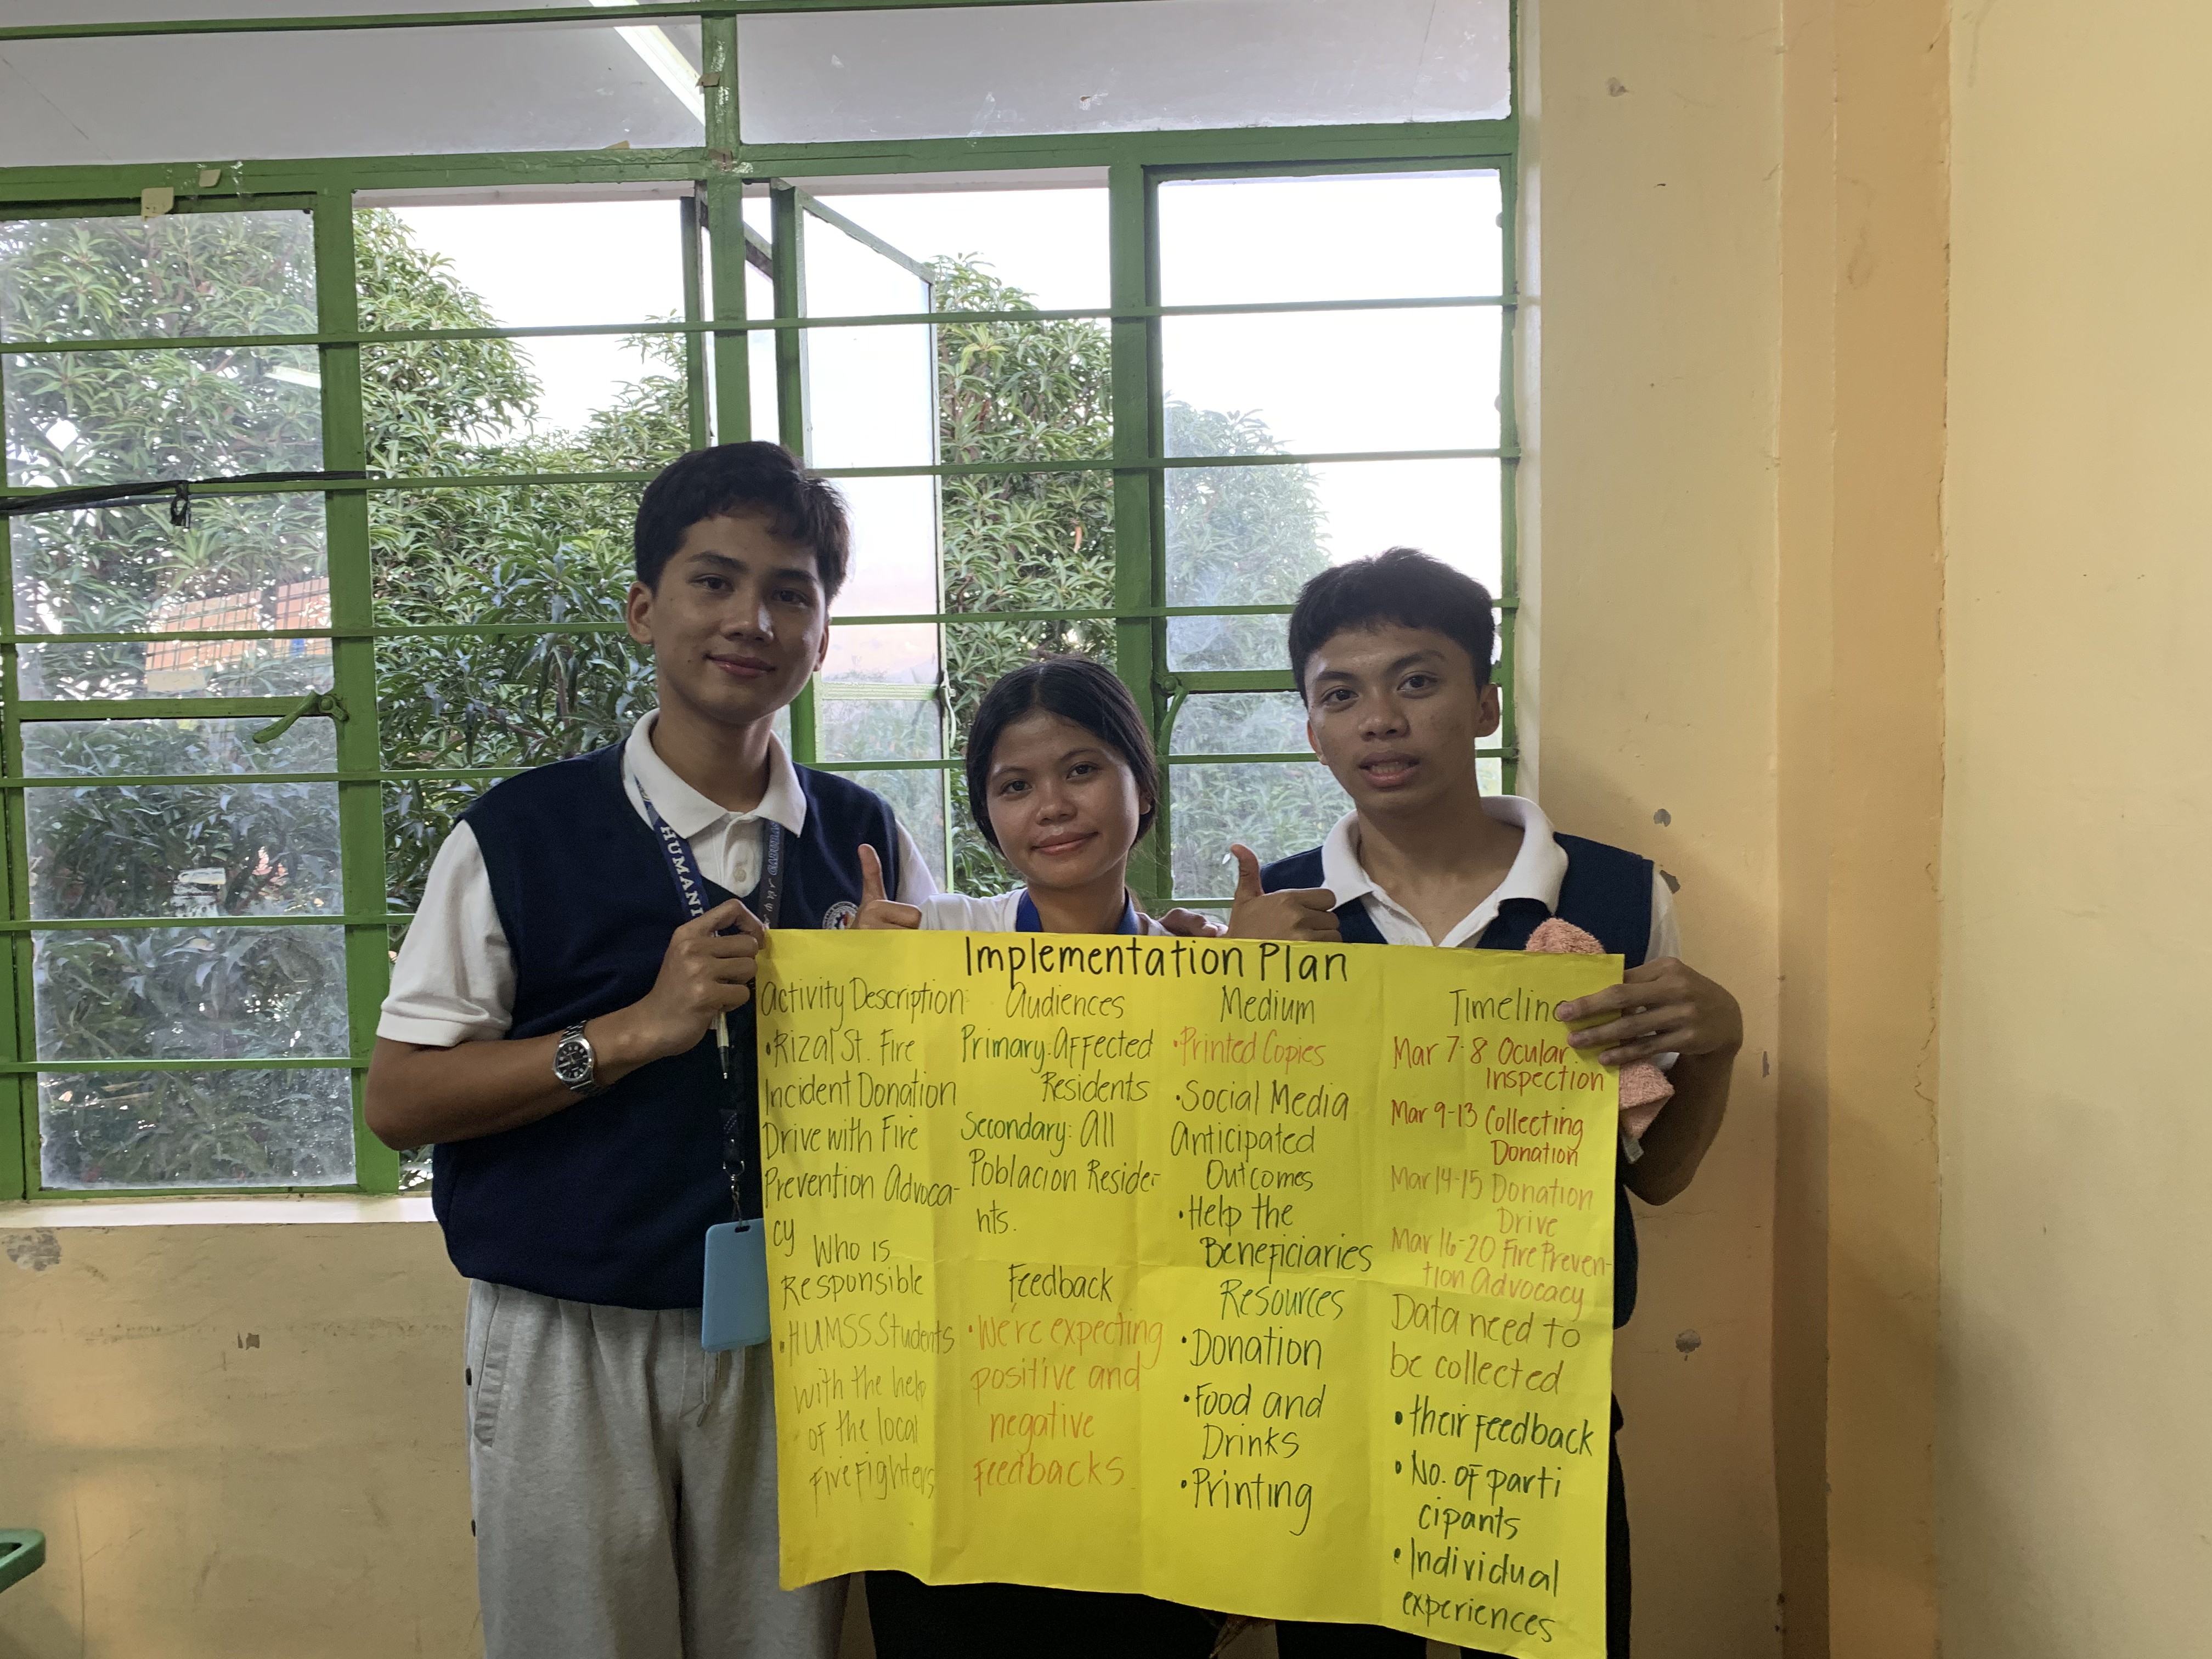 HUMANI
Implementation Plan
Activity Description:
• Rizal St. Fire
Incident Donation
Drive with Fire
Prevention Advoca-
cy
Who is
Responsible
• HUMSS Students
with the help
of the local
FireFighters
Audiences
Primary: Affected
Residents
Secondary: All
Poblacion Reside-
nts.
Feedback
• We're expecting
positive and
negative
Feedbacks.
Medium
• Printed Copies
• Social Media
Anticipated
Outcomes
• Help the
Beneficiaries
Resources
• Donation
• Food and
Drinks
• Printing
Timeline
Mar 7-8 Ocular
Inspection
Mar 9-13 Collecting
Donation
Mar 14-15 Donation
Drive
Mar 16-20 Fire Preven-
tion Advocacy
Data need to
be collected
• their feedback
• No. of parti
cipants
• Individual
experiences